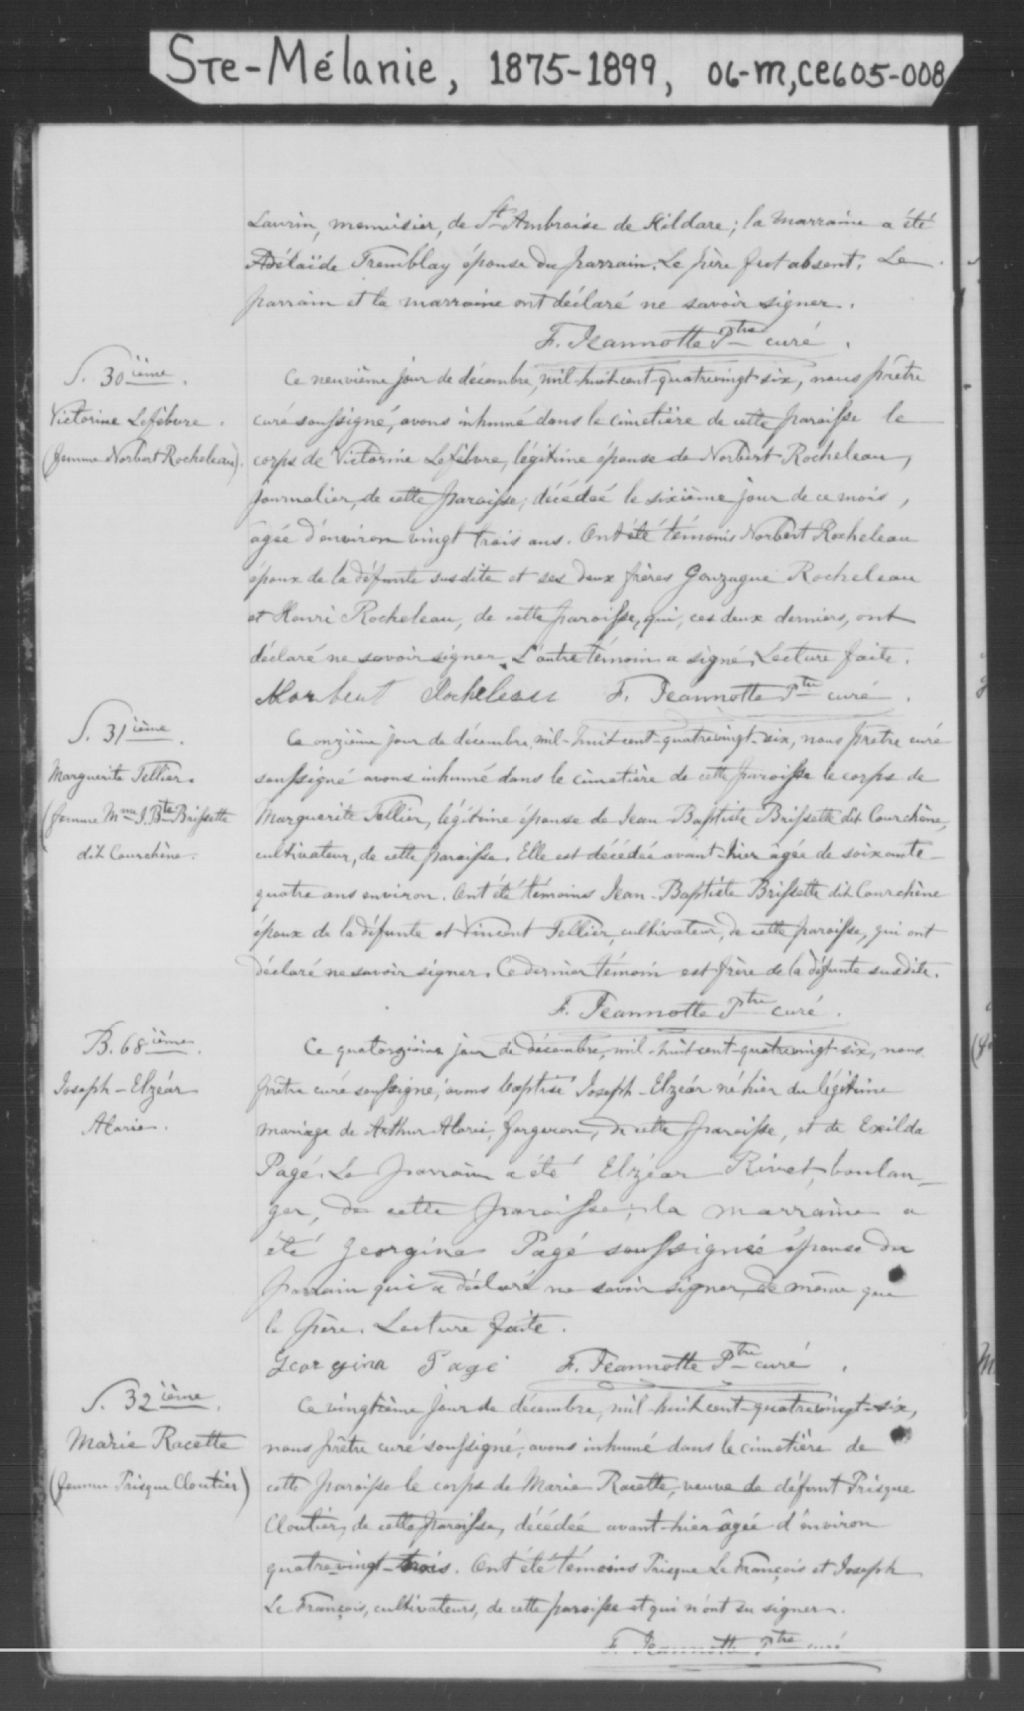 Ste-Mélanie, 1875-1899, 06-M, CE605-008
Laurin, menuisier, de St Ambroise de Kildare; la marraine a été
Adélaïde Tremblay épouse du parrain. Le père fut absent. Le
parrain et la marraine ont déclaré ne savoir signer.
F. Jeannotte Ptre curé.
S. 30ième.
Victorine Lefebvre.
(femme Norbert Rocheleau).
Ce neuvième jour de décembre, mil-huit-cent-quatrevingt-six, nous prêtre
curé soussigné, avons inhumé dans le cimetière de cette paroisse le
corps de Victorine Lefebvre, légitime épouse de Norbert Rocheleau,
journalier, de cette paroisse; décédée le sixième jour de ce mois,
âgée d'environ vingt trois ans. Ont été témoins Norbert Rocheleau
époux de la défunte susdite et ses deux frères Gonzague Rocheleau
et Henri Rocheleau, de cette paroisse, qui, ces deux derniers, ont
déclaré ne savoir signer. L'autre témoin a signé. Lecture faite.
Norbert Rocheleau F. Jeannotte Ptre curé.
S. 31ième.
Marguerite Tellier.
(femme Mr J. Bte Brissette
dit Courchène.
Ce onzième jour de décembre, mil-huit-cent-quatrevingt-six, nous prêtre curé
soussigné avons inhumé dans le cimetière de cette paroisse le corps de
Marguerite Tellier, légitime épouse de Jean-Baptiste Brissette dit Courchène,
cultivateur, de cette paroisse. Elle est décédée avant-hier âgée de soixante-
quatre ans environ. Ont été témoins Jean-Baptiste Brissette dit Courchène
époux de la défunte et Vincent Tellier, cultivateur, de cette paroisse, qui ont
déclaré ne savoir signer. Ce dernier témoin est frère de la défunte susdite.
F. Jeannotte Ptre curé.
B. 68ième.
Joseph-Elzéar
Alarie.
Ce quatorzième jour de décembre, mil-huit-cent-quatrevingt-six, nous
prêtre curé soussigné, avons baptisé Joseph-Elzéar né hier du légitime
mariage de Arthur Alarie, forgeron, de cette paroisse, et de Exilda
Pagé. Le parrain a été Elzéar Rivet, boulan-
ger, de cette paroisse; la marraine a
été Georgina Pagé soussignée épouse du
parrain qui a déclaré ne savoir signer, de même que
le père. Lecture faite.
Georgina Pagé F. Jeannotte Ptre curé.
S. 32ième.
Marie Racette
(femme Prisque Cloutier)
Ce vingtième jour de décembre, mil-huit-cent-quatrevingt-six,
nous prêtre curé soussigné, avons inhumé dans le cimetière de
cette paroisse le corps de Marie Racette, veuve de défunt Prisque
Cloutier, de cette paroisse, décédée avant-hier âgée d'environ
quatrevingt-trois. Ont été témoins Prisque Le François et Joseph
Le François, cultivateurs, de cette paroisse et qui n'ont su signer.
F. Jeannotte Ptre curé